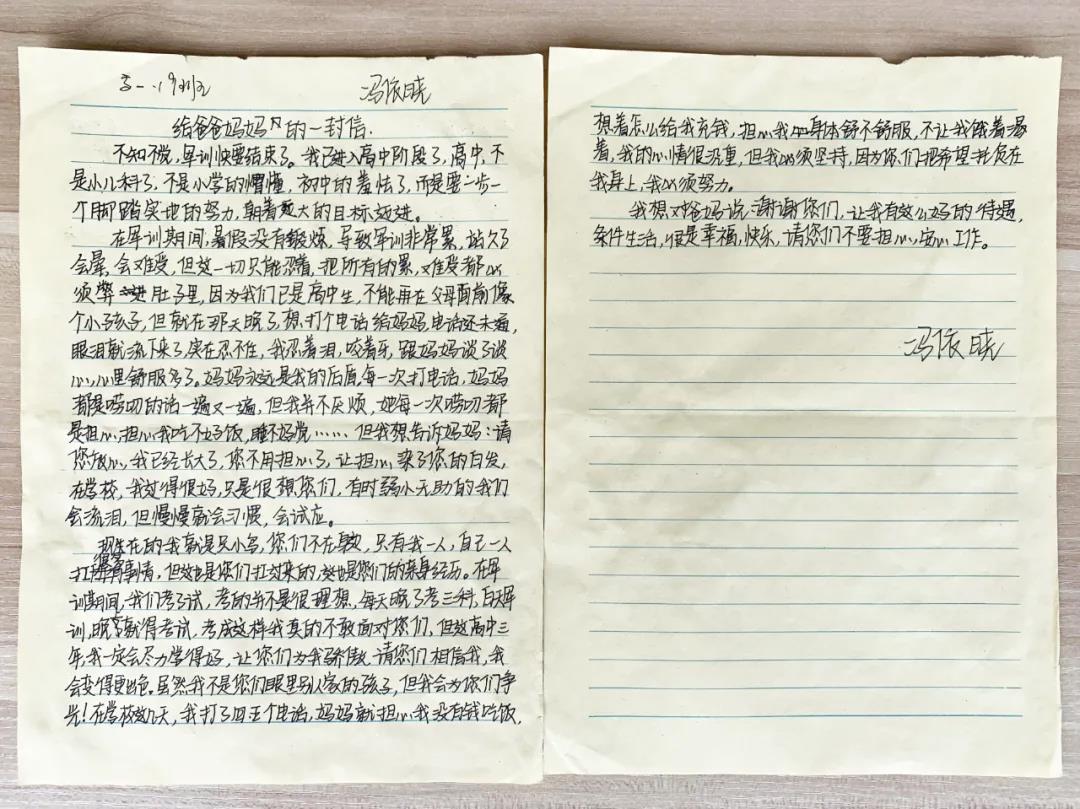 高一.19班
冯依晓
给爸爸妈妈的一封信.
不知不觉,军训快要结束了。我已进入高中阶段了,高中,不
是小儿科了,不是小学的懵懂,初中的羞怯了,而是要一步一
个脚踏实地的努力,朝着远大的目标前进。
在军训期间,暑假没有锻炼,导致军训非常累,站久了
会晕,会难受,但这一切只能忍着,把所有的累,难受都必
须弊进肚子里,因为我们已是高中生,不能再在父母面前像
个小孩子,但就在那天晚了,想打个电话给妈妈,电话还未通,
眼泪就流下来了,实在忍不住,我忍着泪,咬着牙,跟妈妈谈了谈
心,心里舒服多了。妈妈永远是我的后盾,每一次打电话,妈妈
都是唠叨的话一遍又一遍,但我并不厌烦,她每一次唠叨都
是担心,担心我吃不好饭,睡不好觉……但我想告诉妈妈:请
您放心,我已经长大了,您不用担心了,让担心染了您的白发,
在学校,我过得很好,只是很想您们,有时弱小无助的我们
会流泪,但慢慢就会习惯,会试应。
现在的我就是只小鸟,您们不在身边,只有我一人,自己一人
扛所有事情,但这也是您们扛过来的,这也是您们的亲身经历。在军
训期间,我们考了试,考的并不是很理想,每天晚了考三科,白天军
训,晚了就得考试,考成这样我真的不敢面对您们,但这高中三
年,我一定会尽力学得好,让您们为我骄傲,请您们相信我,我
会变得更出色。虽然我不是您们眼里别人家的孩子,但我会为你们争
光!在学校这几天,我打了四五个电话,妈妈就担心我没有钱吃饭,
想着怎么给我充钱,担心我身体舒不舒服,不让我饿着渴
着,我的心情很沉重,但我必须坚持,因为您们把希望托负在
我身上,我必须努力。
我想对爸妈说:谢谢您们,让我有这么好的待遇,
条件生活,很是幸福,快乐,请您们不要担心,安心工作。
冯依晓